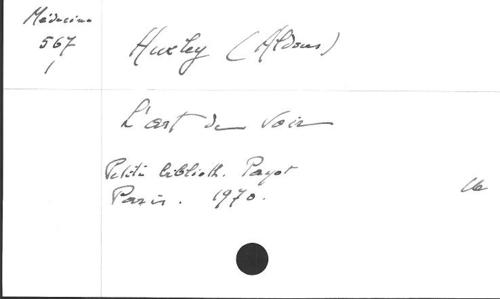 Médecine
567
1
Huxley (Aldous)
L'art de voir
Petite biblioth. Payot
Paris. 1970.